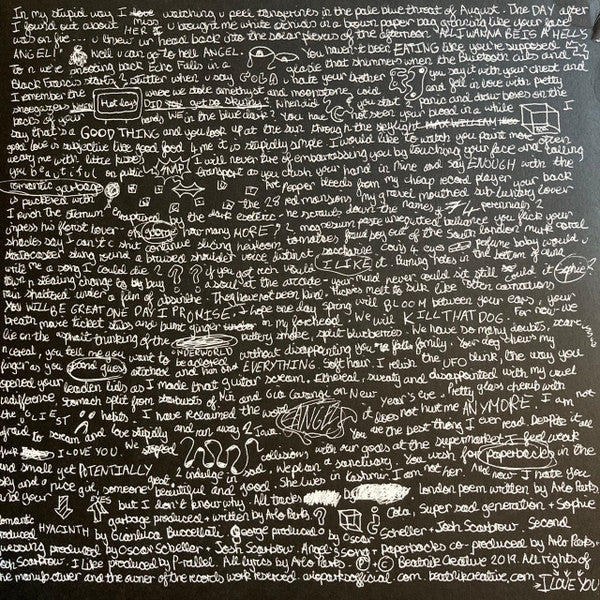 In my stupid way I love watching u peel tangerines in the pale blue throat of August. The DAY after
I found out about HER miss u brought me white orchids in a brown paper bag grinning like your face
was on fire - u threw ur head back into the solar plexus of the afternoon. "ALL I WANNA BE IS A HELL'S
ANGEL!" Well u can go to hell ANGEL. You haven't been EATING like you're supposed
to n we're snorting back Echo Falls in a glade that shimmers when the bluetooth cuts and
Black Francis starts 2 stutter when u say GOLD. I hate your brother you say it with your chest and
I remember the where we stole amethyst and moonstone and fell in love with pretty
shopgazers Hot days DID YOU get so skinny? When did you start 2 panic and draw boxes on the
backs of your hands WE in the blue dark? You have not seen your blood in a while I
say that's a GOOD THING and you look up at the sun through the skylight
good love is subjective like good food 4 me it is stupidly simple. I would like to watch you paint more often
weary me with little kisses I will never tire of embarrassing you by touching your face and calling
you beautiful on public transport You crush your hand in mine and say ENOUGH with the
romantic garbage Hot Pepper bleeds from my cheap record player, your back
is puckered with the 28 red mansions, my gravel mouthed out lunching lover
I pinch the sternum enraptured by the dark esoteric - he scrawls down the names of perennials 2
impress his florist lover - oh to adore how many MORE? 2 magnesium posie unrequited brilliance you flick your
shackles say I can't & shit continue slicing heirloom tomatoes fraudjoy out of the south london
Stratocaster slung round a bruised shoulder voice distinct saccharine perfume baby would u
write me a song I could die 2 if you got rich would I LIKE it. Burning holes in the bottom of
town n stealing change to buy a soul at the arcade - your mind never could sit still could it Sophie?
run shattered under a film of absinthe. They have not been kind. Knives melt to silk like otter
YOU WILL BE GREAT ONE DAY I PROMISE. I hope one day spring will BLOOM between your ears, your
breath movie ticket stubs and burnt ginger on my forehead. We will KILL THAT DOG. For now we
lie on the asphalt thinking of the UNDERWORLD buttery smoke, split blueberries. We have so many doubts, scare
n reveal, you tell me you want to be adored without disappointing you n falls family. Your dog views my
finger as you stand guess attached and him and EVERYTHING. Soft hour. I relish the UFO blink, the way you
opened your leaden lids as I made that guitar scream. Ethereal, sweaty and disappointed with my cruel
indifference, stomach split from starbursts of Nin and Gia Carangi on New year's eve. Pretty glass cherub with
the OLIEST habits. I have reclaimed the word ANGEL it does not hurt me ANYMORE. I am not
afraid to scream and love stupidly and ran away 2 Java. You are the best thing I ever read. Despite it all
I LOVE YOU. We collisions with our gods at the supermarket I feel weak
and small yet POTENTIALLY great, 2 indulge in sad. We plan a sanctuary. You wish for paperbacks in the
sky and a nice girl, someone beautiful and good. She lives in Kashmir, I am not her. And now I hate you
and your EYES but I don't know why. All tracks London poem written by Arlo Parks.
romantic garbage produced + written by Arlo Parks. Cola, Super sad generation + Sophie
produced HYACINTH by Gianluca Buccellati. George produced by Oscar Scheller + Josh Scarbrow. Second
guessing produced by Oscar Scheller + Josh Scarbrow. Angel's song + paperbacks co-produced by Arlo Parks +
Josh Scarbrow. I Like produced by P-rallel. All lyrics by Arlo Parks. Ⓟ + © Beatnik Creative 2019. All rights of
the manufacturer and the owner of the records work reserved. arloparksofficial.com. beatnikcreative.com. I LOVE YOU